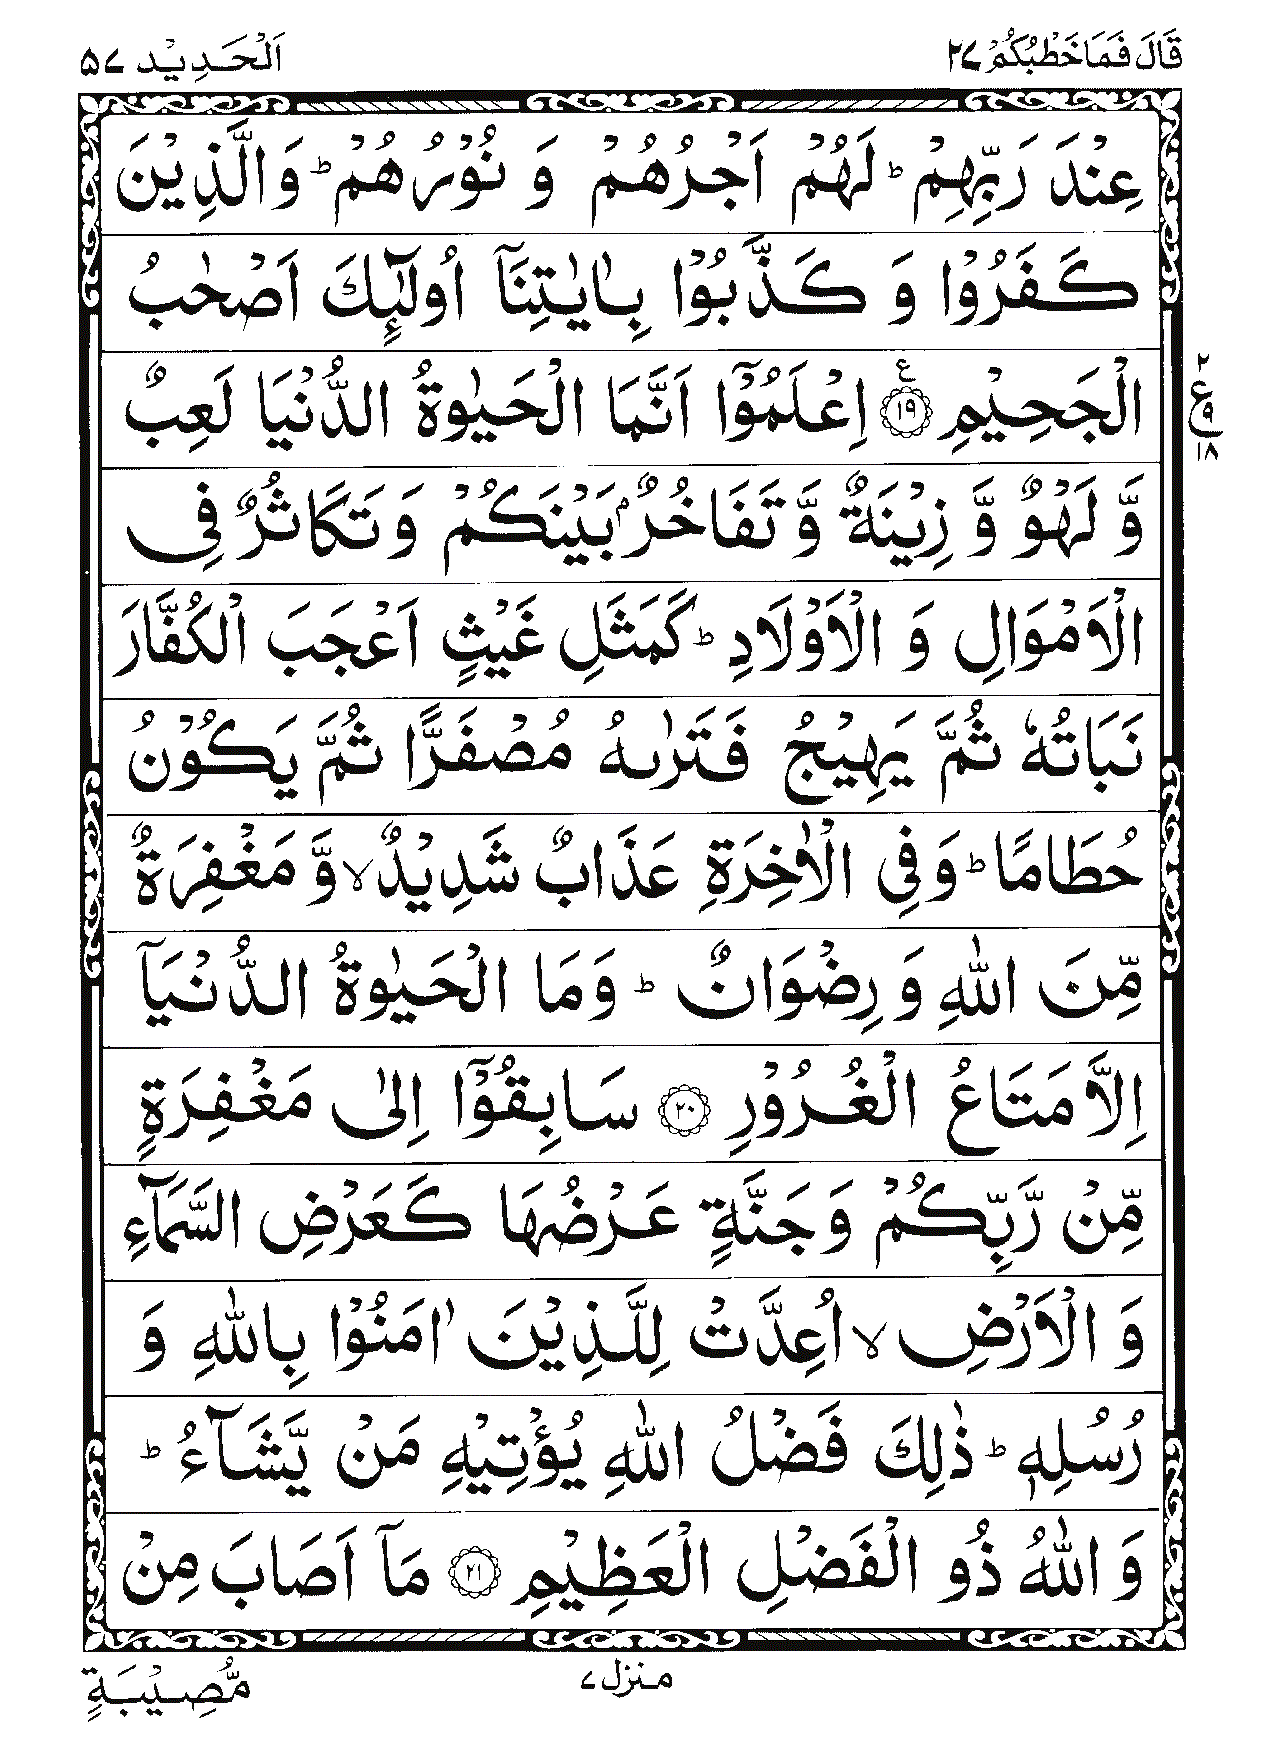 قَالَ فَمَا خَطْبُكُمْ ٢٧
اَلْحَدِيْد ٥٧
عِنْدَ رَبِّهِمْ ؕ لَهُمْ اَجْرُهُمْ وَ نُوْرُهُمْ ؕ وَالَّذِيْنَ
كَفَرُوْا وَ كَذَّبُوْا بِاٰيٰتِنَاۤ اُولٰٓئِكَ اَصْحٰبُ
الْجَحِيْمِ ۧ ١٩ اِعْلَمُوْۤا اَنَّمَا الْحَيٰوةُ الدُّنْيَا لَعِبٌ
٢ ع ٩ ١٨
وَّ لَهْوٌ وَّ زِيْنَةٌ وَّ تَفَاخُرٌۢ بَيْنَكُمْ وَ تَكَاثُرٌ فِى
الْاَمْوَالِ وَ الْاَوْلَادِ ؕ كَمَثَلِ غَيْثٍ اَعْجَبَ الْكُفَّارَ
نَبَاتُهٗ ثُمَّ يَهِيْجُ فَتَرٰىهُ مُصْفَرًّا ثُمَّ يَكُوْنُ
حُطَامًا ؕ وَ فِى الْاٰخِرَةِ عَذَابٌ شَدِيْدٌ ۙ وَّ مَغْفِرَةٌ
مِّنَ اللّٰهِ وَ رِضْوَانٌ ؕ وَمَا الْحَيٰوةُ الدُّنْيَاۤ
اِلَّا مَتَاعُ الْغُرُوْرِ ٢٠ سَابِقُوْۤا اِلٰى مَغْفِرَةٍ
مِّنْ رَّبِّكُمْ وَ جَنَّةٍ عَرْضُهَا كَعَرْضِ السَّمَآءِ
وَ الْاَرْضِ ۙ اُعِدَّتْ لِلَّذِيْنَ اٰمَنُوْا بِاللّٰهِ وَ
رُسُلِهٖ ؕ ذٰلِكَ فَضْلُ اللّٰهِ يُؤْتِيْهِ مَنْ يَّشَآءُ ؕ
وَ اللّٰهُ ذُو الْفَضْلِ الْعَظِيْمِ ٢١ مَاۤ اَصَابَ مِنْ
منزل ٧
مُّصِيْبَةٍ